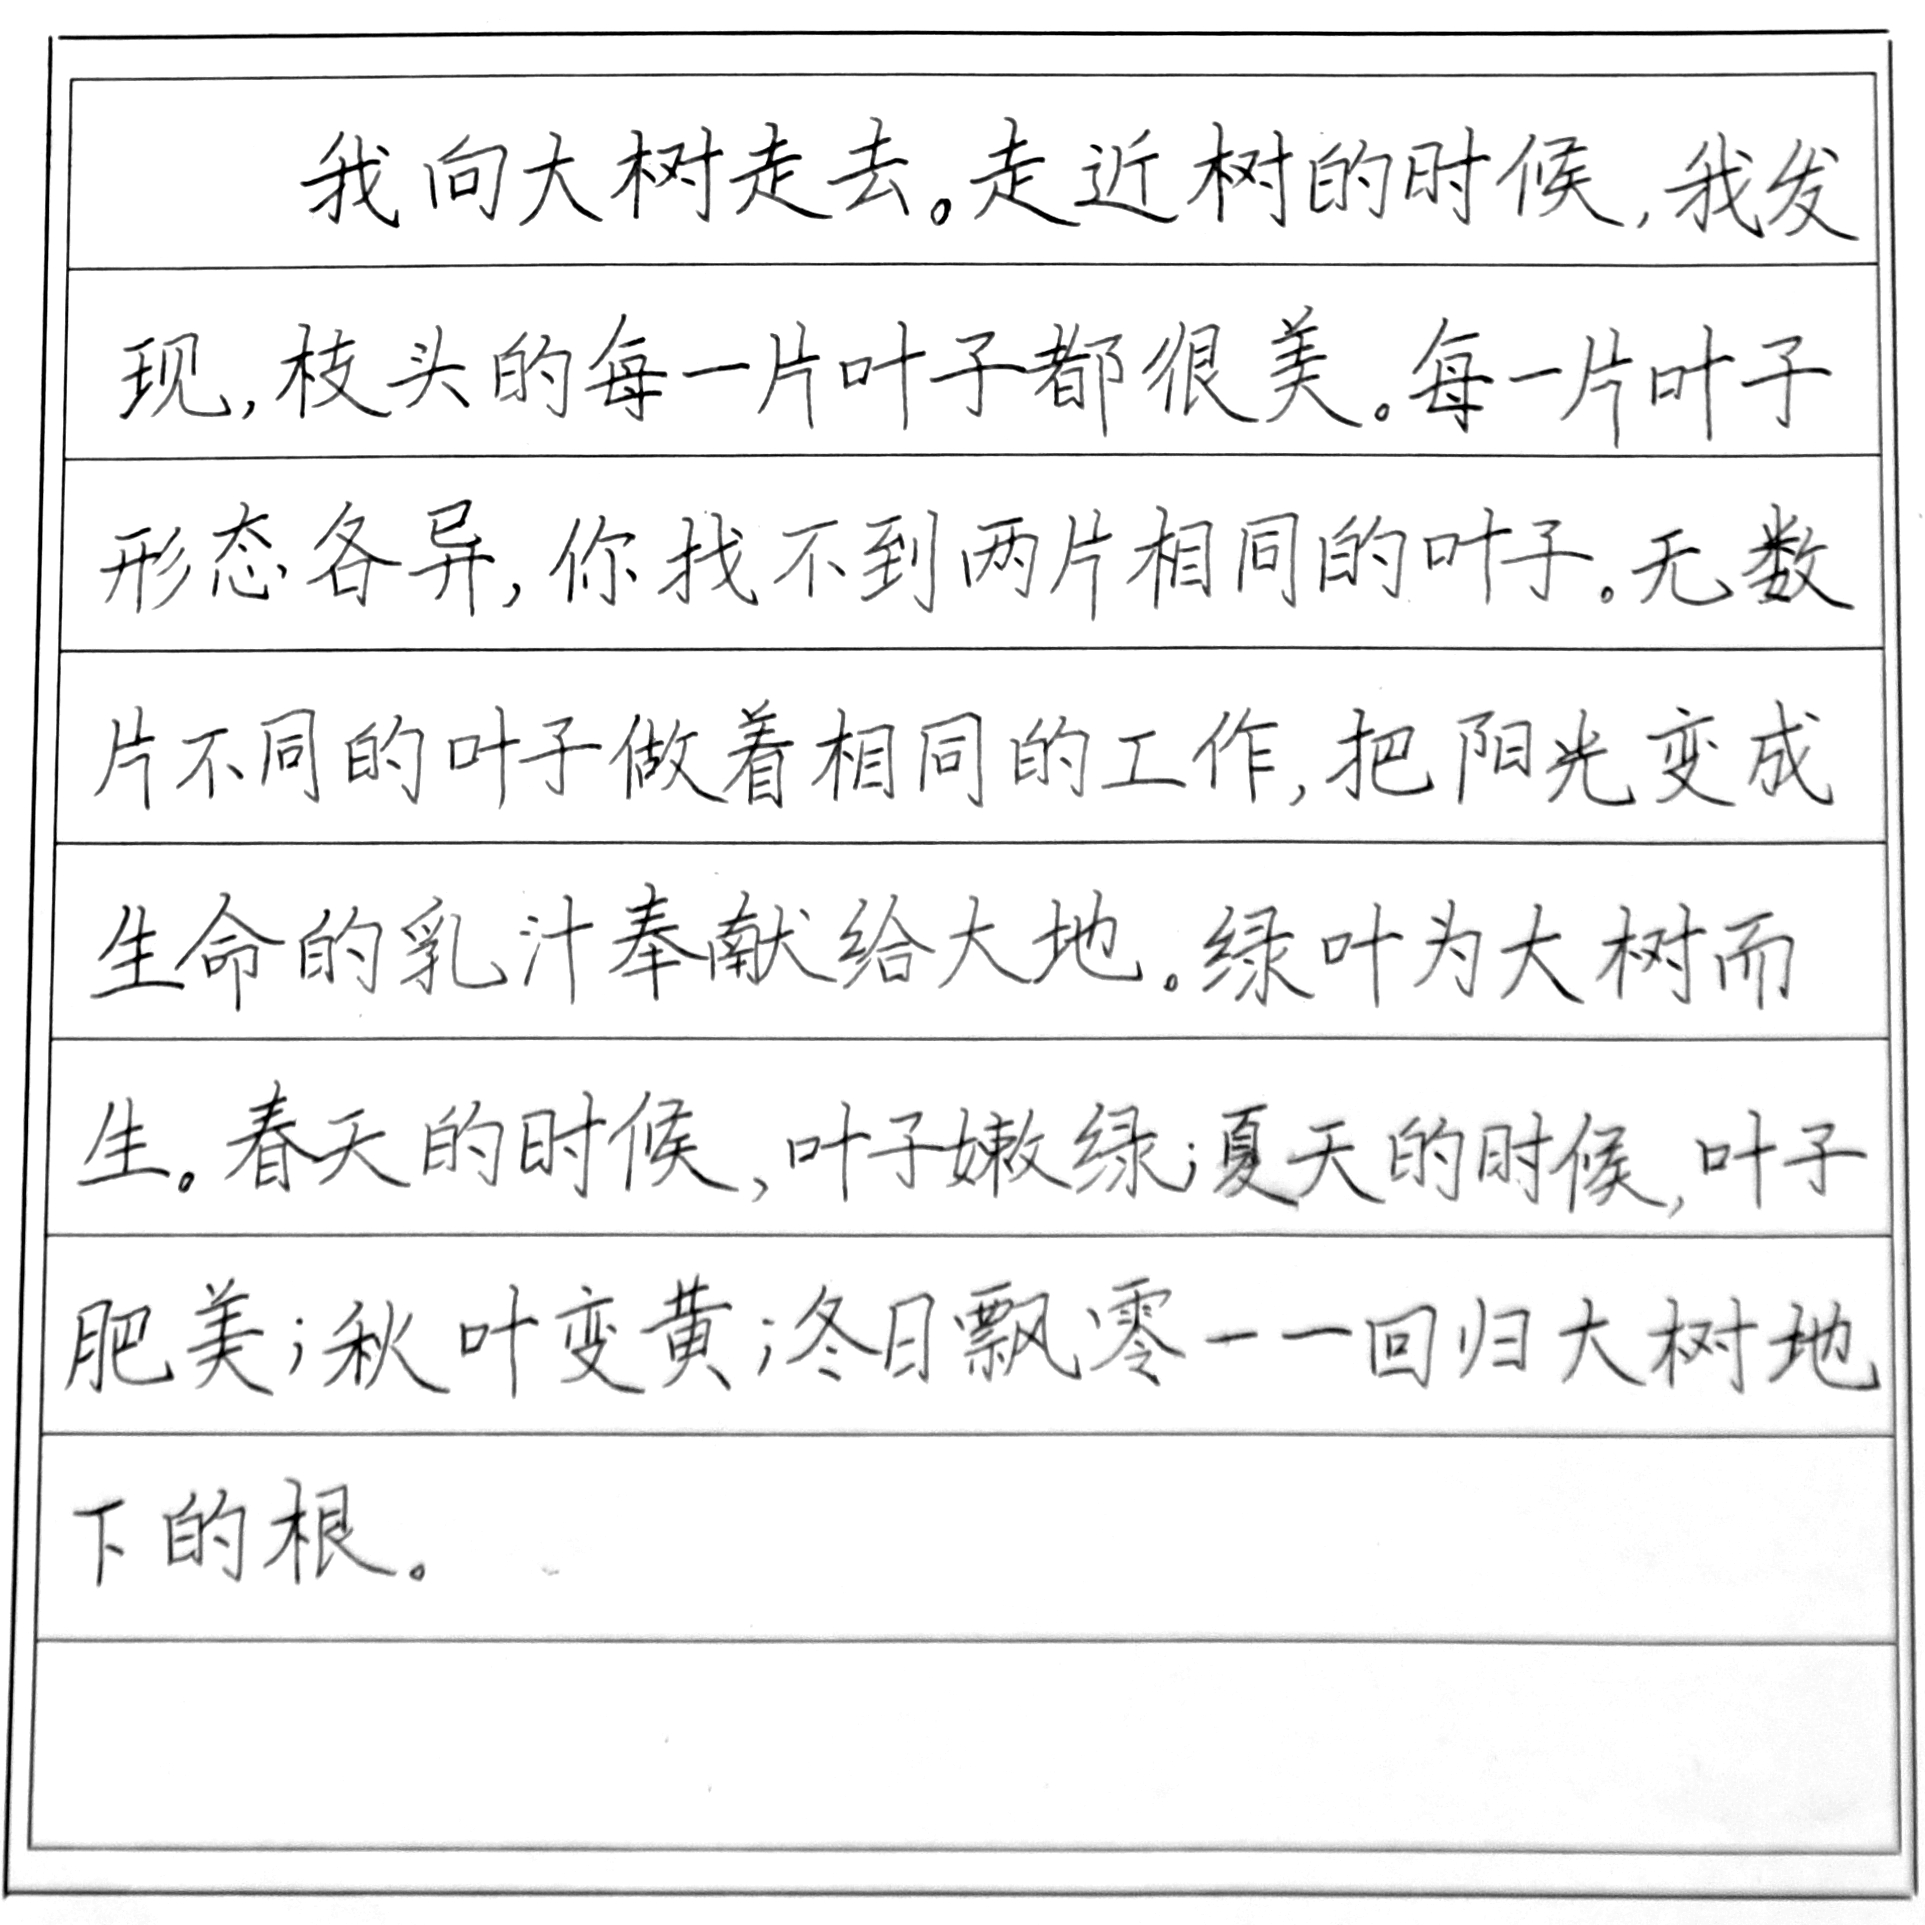 我向大树走去。走近树的时候,我发
现,枝头的每一片叶子都很美。每一片叶子
形态各异,你找不到两片相同的叶子。无数
片不同的叶子做着相同的工作,把阳光变成
生命的乳汁奉献给大地。绿叶为大树而
生。春天的时候,叶子嫩绿;夏天的时候,叶子
肥美;秋叶变黄;冬日飘零——回归大树地
下的根。